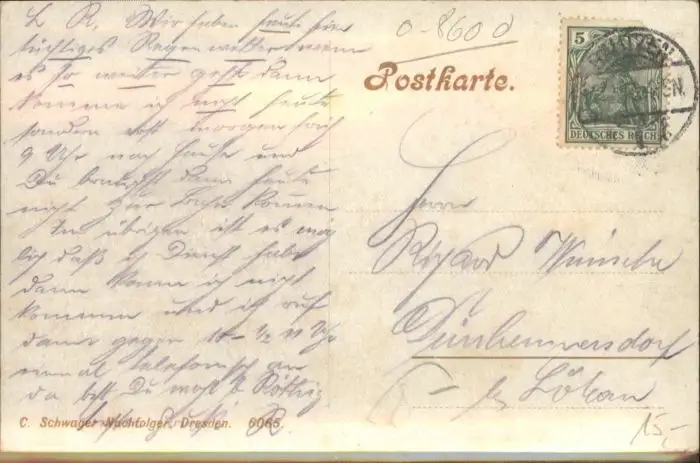 L. R. Wir haben heute hier
tüchtiges Regenwetter wenn
es so weiter geht dann
komme ich nicht heute
sondern erst morgen früh
9 Uhr nach Hause und
Du brauchst dann heute
nicht zur kommen
Im übrigen ist es mög
lich daß ich Dienst habe
dann kann ich nicht
kommen und ich ruf
dann gegen 10-½ 11 Uhr
einmal telefonisch an
da bist Du wohl b. Röthig
R.
o-860 d
Postkarte.
5
DEUTSCHES REICH
Herrn
Richard Wünsche
Dürrhennersdorf
b. Löbau
15,-
C. Schwager Nachfolger, Dresden. 6065.